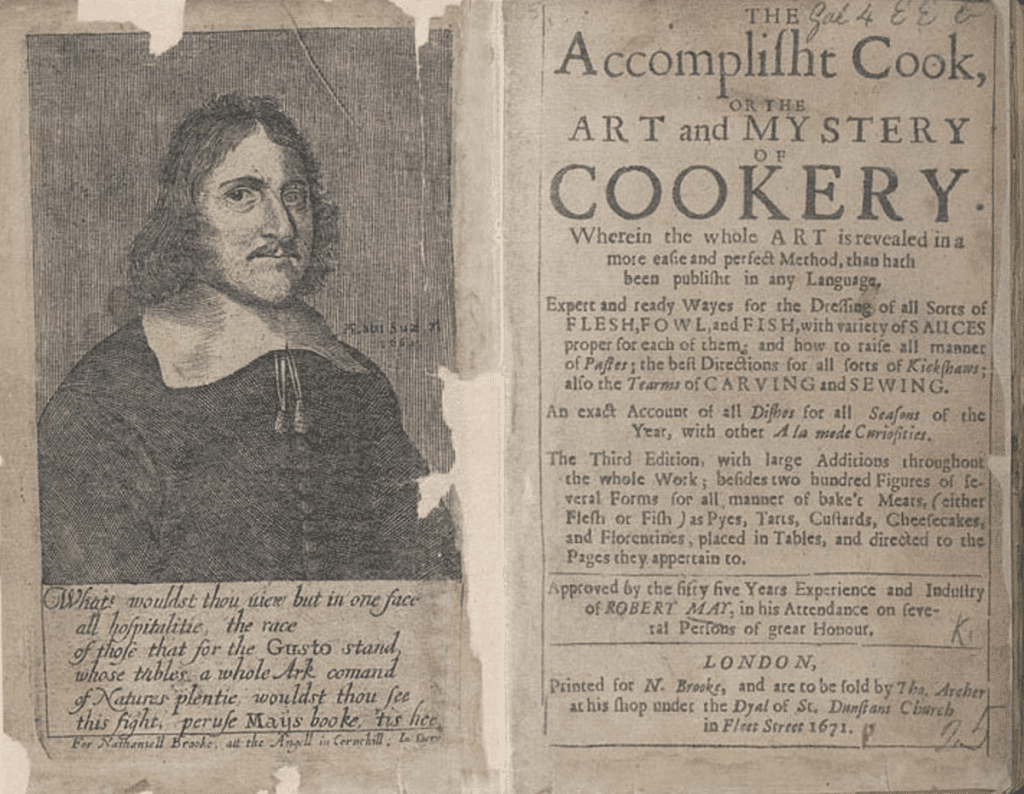 What wouldst thou view but in one face
all hospitalitie, the race
of those that for the Gusto stand,
whose tables a whole Ark comand
of Natures plentie, wouldst thou see
this sight, peruse Mays booke, tis hee
For Nathaniell Brooke, att the Angell in Cornehill,
THE
Accompliſht Cook,
OR THE
ART and MYSTERY
OF
COOKERY.
Wherein the whole ART is revealed in a
more eaſie and perfect Method, than hath
been publiſht in any Language.
Expert and ready Wayes for the Dreſſing of all Sorts of
FLESH, FOWL, and FISH, with variety of SAUCES
proper for each of them; and how to raiſe all manner
of Paſtes; the beſt Directions for all ſorts of Kickſhaws;
alſo the Tearms of CARVING and SEWING.
An exact Account of all Diſhes for all Seaſons of the
Year, with other A la mode Curioſities.
The Third Edition, with large Additions throughout
the whole Work; beſides two hundred Figures of ſe-
veral Forms for all manner of bake't Meats, (either
Fleſh or Fiſh) as Pyes, Tarts, Cuſtards, Cheeſecakes,
and Florentines, placed in Tables, and directed to the
Pages they appertain to.
Approved by the fifty five Years Experience and Induſtry
of ROBERT MAY, in his Attendance on ſeve-
ral Perſons of great Honour.
LONDON,
Printed for N. Brooke, and are to be ſold by Tho. Archer
at his ſhop under the Dyal of St. Dunſtans Church
in Fleet Street 1671.